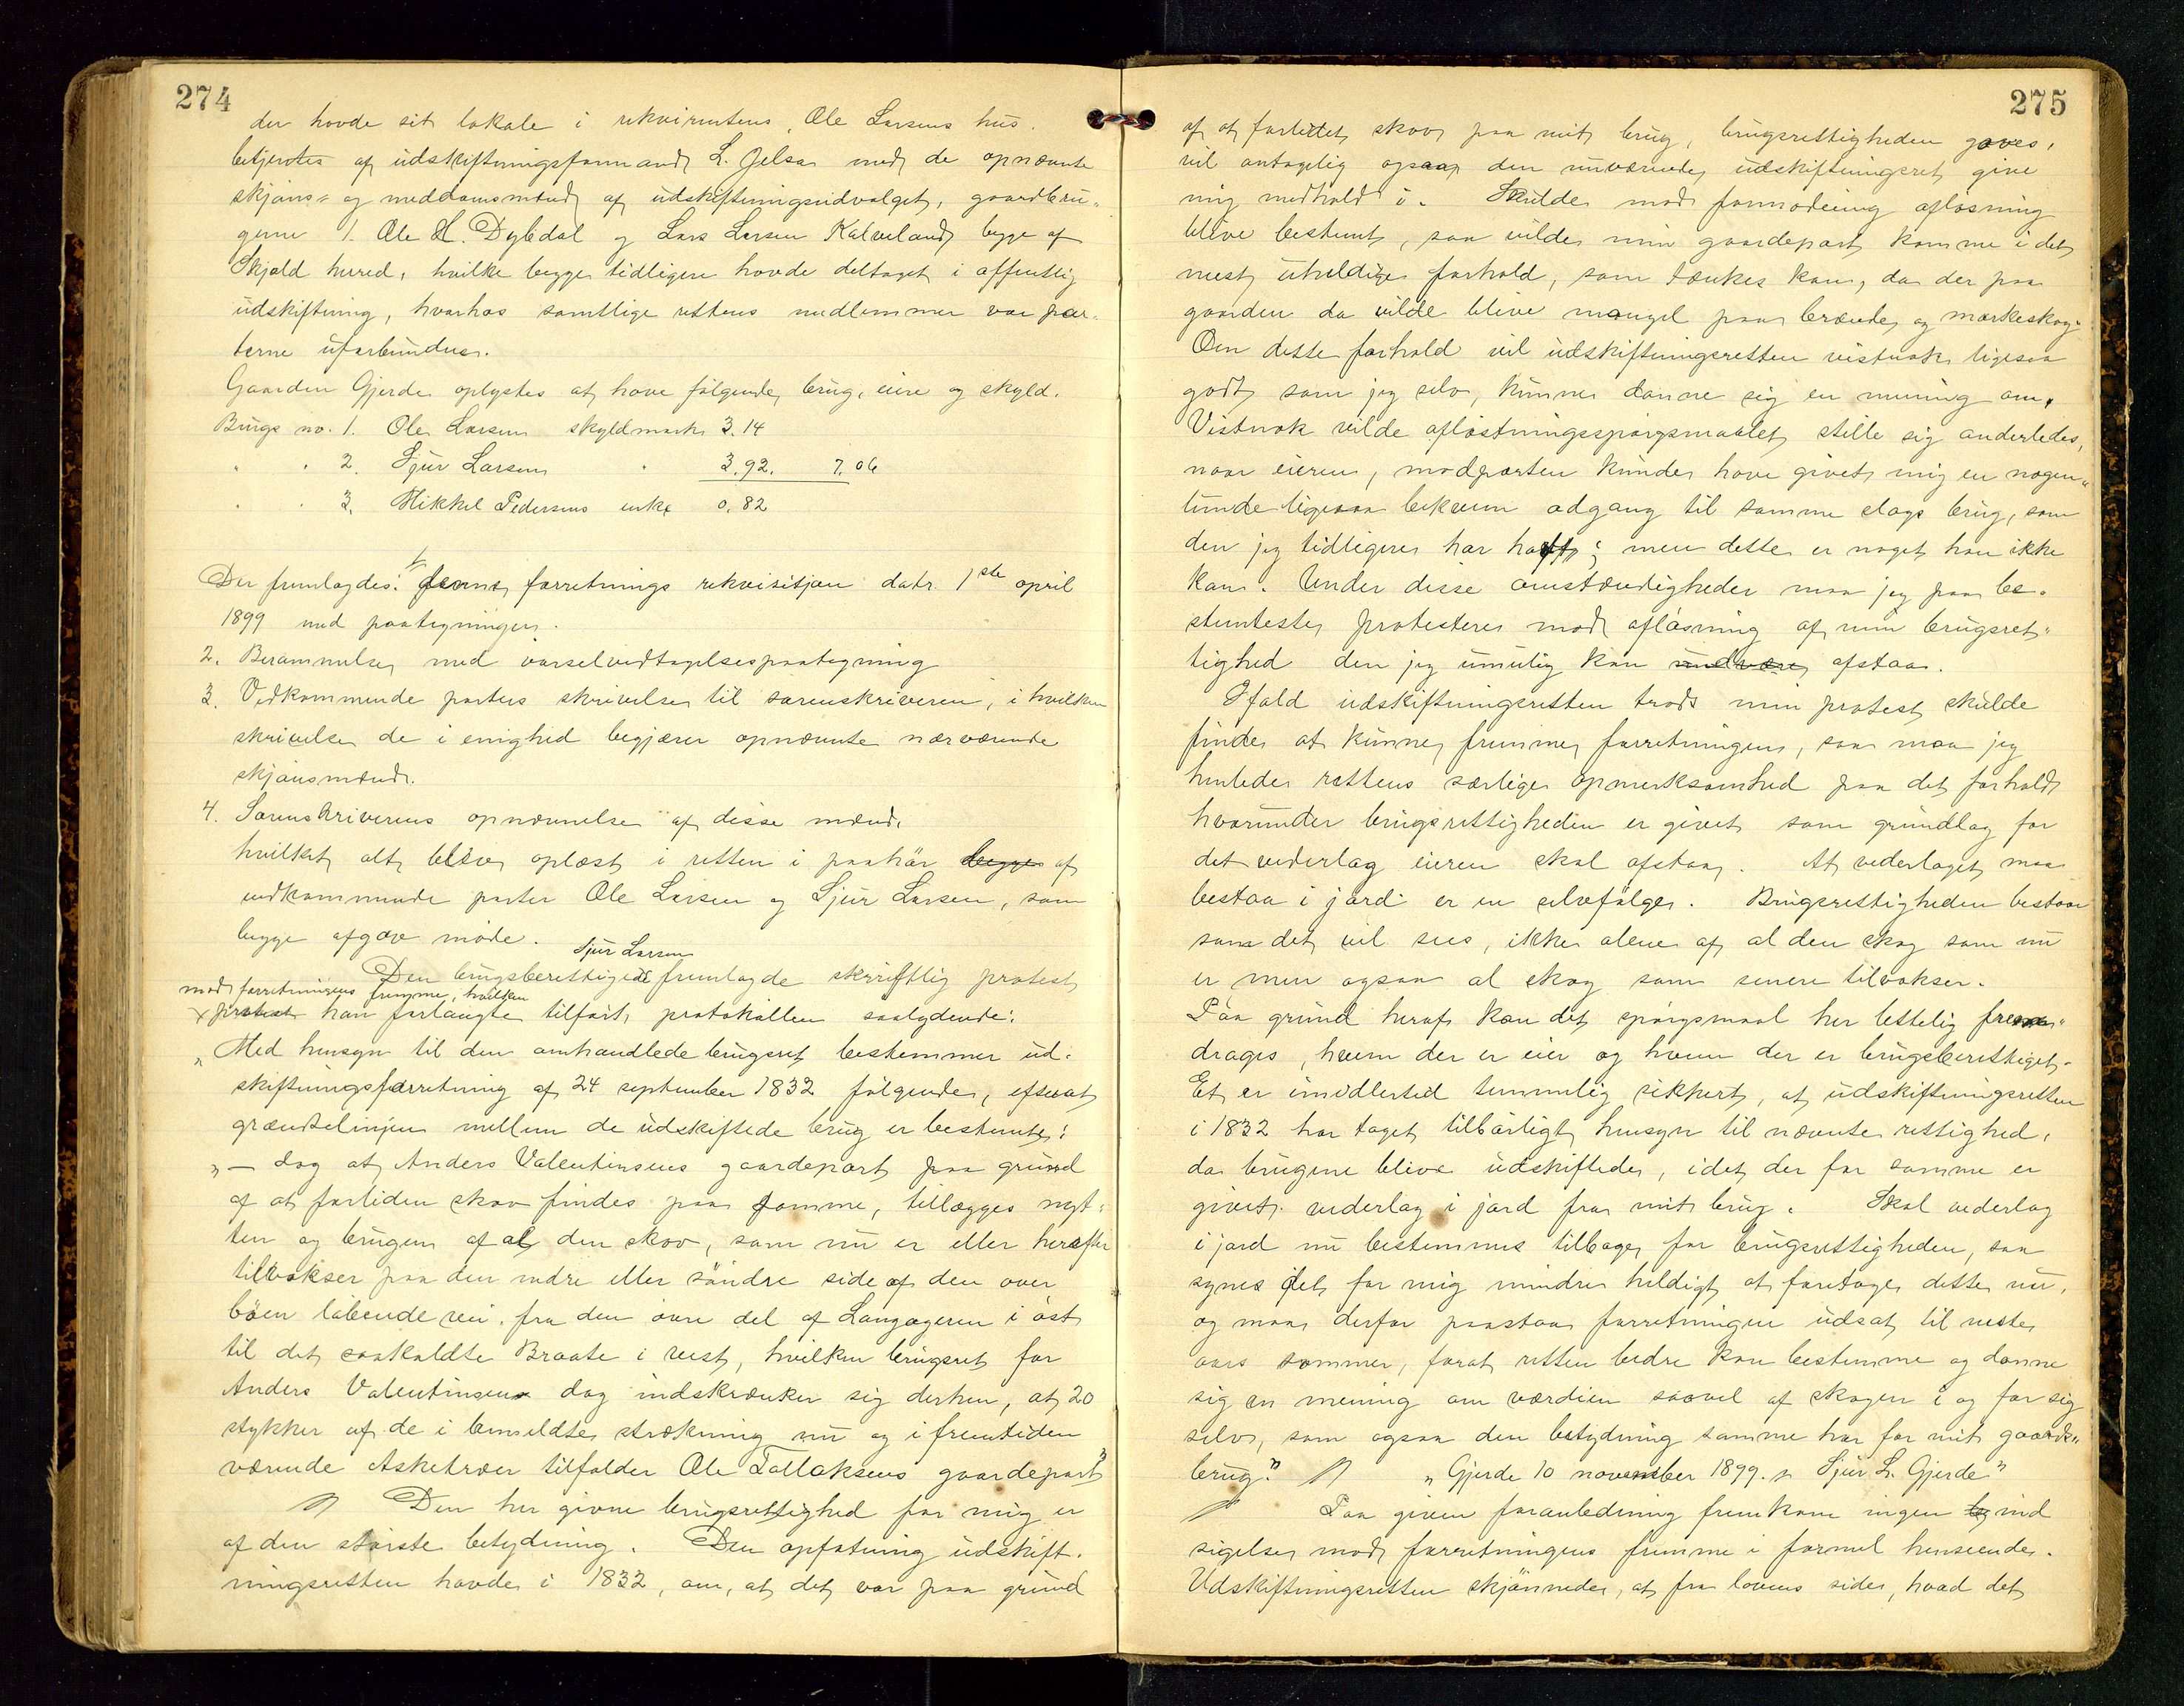 274
der havde sit lokale i rekvirentens, Ole Larsens hus.
betjentes af udskiftningsformand L. Jelsa med de opnævnte
skjøns- og meddomsmænd af udskiftningsudvalget, gaardbru-
gerne 1. Ole H. Dybdal og Lars Larsen Kalveland begge af
Skjold hered, hvilke begge tidligere havde deltaget i offentlig
udskiftning, hvorhos samtlige rettens medlemmer var par-
terne uforbundne.
Gaarden Gjerde oplystes at have følgende brug, eiere og skyld.
Brugs no. 1. Ole Larsen skyldmark 3.14
" " 2. Sjur Larsen " 3.92. 7.06
" " 3. Mikkel Pedersens enke 0.82
Der fremlagdes: 1. denne forretnings rekvisitjon datr. 1ste april
1899 med paategninger.
2. Berammelse med varselvedtagelsespaategning
3. Vedkommende parters skrivelse til sorenskriveren, i hvilken
skrivelse de i enighed begjærer opnævnte nærværende
skjønsmænd.
4. Sorenskriverens opnævnelse af disse mænd.
hvilket alt blev oplæst i retten i paahør begge af
vedkommende parter Ole Larsen og Sjur Larsen, som
begge afgav møde.
Sjur Larsen
Den brugsberettigede fremlagde skriftlig protest
mod forretningens fremme, hvilken
x protest han forlangte tilført protokollen saalydende:
"Med hensyn til den omhandlede brugsret bestemmer ud-
skiftningsforretning af 24 september 1832 følgende, efterat
grændselinjen mellem de udskiftede brug er bestemte:
"— dog at Anders Valentinsens gaardepart paa grund
af at fortiden skov findes paa samme, tillægges nyt-
ten og brugen af al den skov, som nu er eller herefter
tilvokser paa den nedre eller søndre side af den over
bøen løbende vei, fra den øvre del af Langageren i øst
til det saakaldte Braate i vest, hvilken brugsret for
Anders Valentinsen dog indskrænker sig derhen, at 20
stykker af de i bemeldte strækning nu og i fremtiden
værende Asketræer tilfalder Ole Tollaksens gaardepart"
Den her givne brugsrettighed for mig er
af den største betydning. Den opfatning udskift-
ningsretten havde i 1832, om, at det var paa grund
275
af at forlidet skov paa mit brug, brugsrettigheden gaves,
vil antagelig ogsaa den nuværende udskiftningsret give
mig medhold i. Skulde mod formodning afløsning
blive bestemt, saa vilde min gaardepart komme i det
mest uheldige forhold, som tænkes kan, da der paa
gaarden da vilde blive mangel paa brænde og mærkeskog.
Om dette forhold vil udskiftningsretten vistnok ligesaa
godt som jeg selv, kunne danne sig en mening om.
Vistnok vilde afløstningsspørgsmaalet stille sig anderledes,
naar eieren, modparten kunde have givet mig en nogen-
lunde ligesaa bekvem adgang til samme slags brug, som
den jeg tidligere har haft; men dette er noget han ikke
kan. Under disse omstændigheder maa jeg paa be-
stemteste protestere mod afløsning af min brugsret-
tighed den jeg umulig kan undvære afstaa.
Ifald udskiftningsretten trods min protest skulde
finde at kunne fremme forretningen, saa maa jeg
henlede rettens særlige opmerksomhed paa det forhold
hvorunder brugsrettigheden er givet som grundlag for
det vederlag eieren skal afstaa. At vederlaget maa
bestaa i jord er en selvfølge. Brugsrettigheden bestaar
som det vil sees, ikke alene af al den skog som nu
er men ogsaa al skog som senere tilvokser.
Paa grund heraf kan det spørgsmaal her lettelig frem-
drages, hvem der er eier og hvem der er brugsberettiget.
Et er imidlertid temmelig sikkert, at udskiftningsretten
i 1832 har taget tilbørligt hensyn til nævnte rettighed,
da brugene bleve udskiftede, idet der for samme er
givet vederlag i jord fra mit brug. Skal vederlag
i jord nu bestemmes tilbage for brugsrettigheden, saa
synes det for mig mindre heldigt at foretage dette nu,
og maa derfor paastaa forretningen udsat til neste
aars sommer, forat retten bedre kan bestemme og danne
sig en mening om værdien saavel af skogen i og for sig
selv, som ogsaa den betydning samme har for mit gaards-
brug." "Gjerde 10 november 1899. Sjur L. Gjerde"
Paa given foranledning fremkom ingen ind
sigelse mod forretningens fremme i formel henseende.
Udskiftningsretten skjønnede, at fra lovens side, hvad det